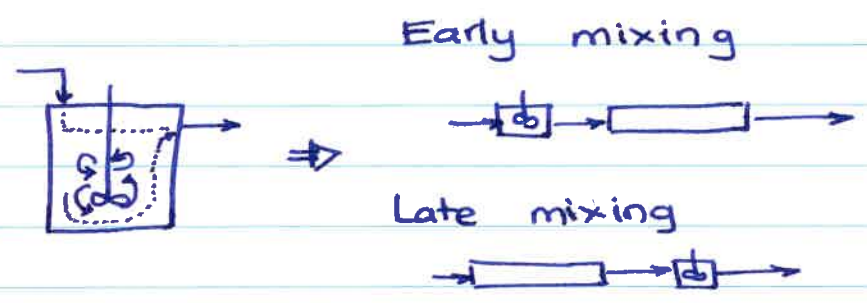 Early mixing
Late mixing